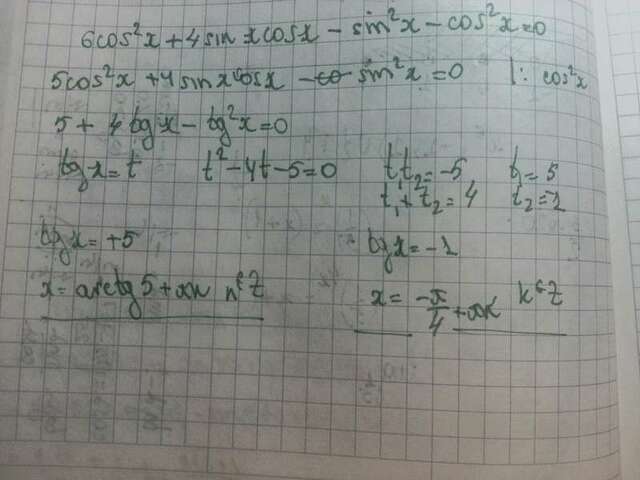 6cos²x + 4 sin x cosx - sin²x - cos²x = 0
5cos²x + 4 sinx cosx - sin²x = 0 |: cos²x
5 + 4 tg x - tg²x = 0
tg x = t t² - 4t - 5 = 0 t₁t₂ = -5 t₁ = 5
t₁ + t₂ = 4 t₂ = -1
tg x = +5 tg x = -1
x = arctg 5 + πn n ∈ Z x = -π/4 + πk k ∈ Z